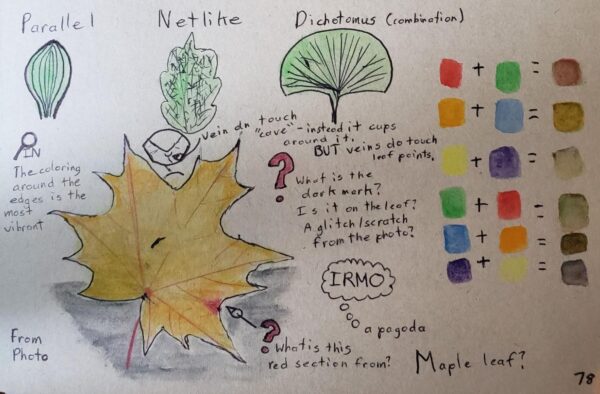 Parallel
Netlike
Dichotomus (combination)
vein dn touch
"cave" - instead it cups
around it.
BUT veins do touch
leaf points.
IN
The coloring
around the
edges is the
most
vibrant
?
What is the
dark mark?
Is it on the leaf?
A glitch/scratch
from the photo?
IRMO
a pagoda
From
Photo
?
What is this
red section from?
Maple leaf?
78
+ =
+ =
+ =
+ =
+ =
+ =